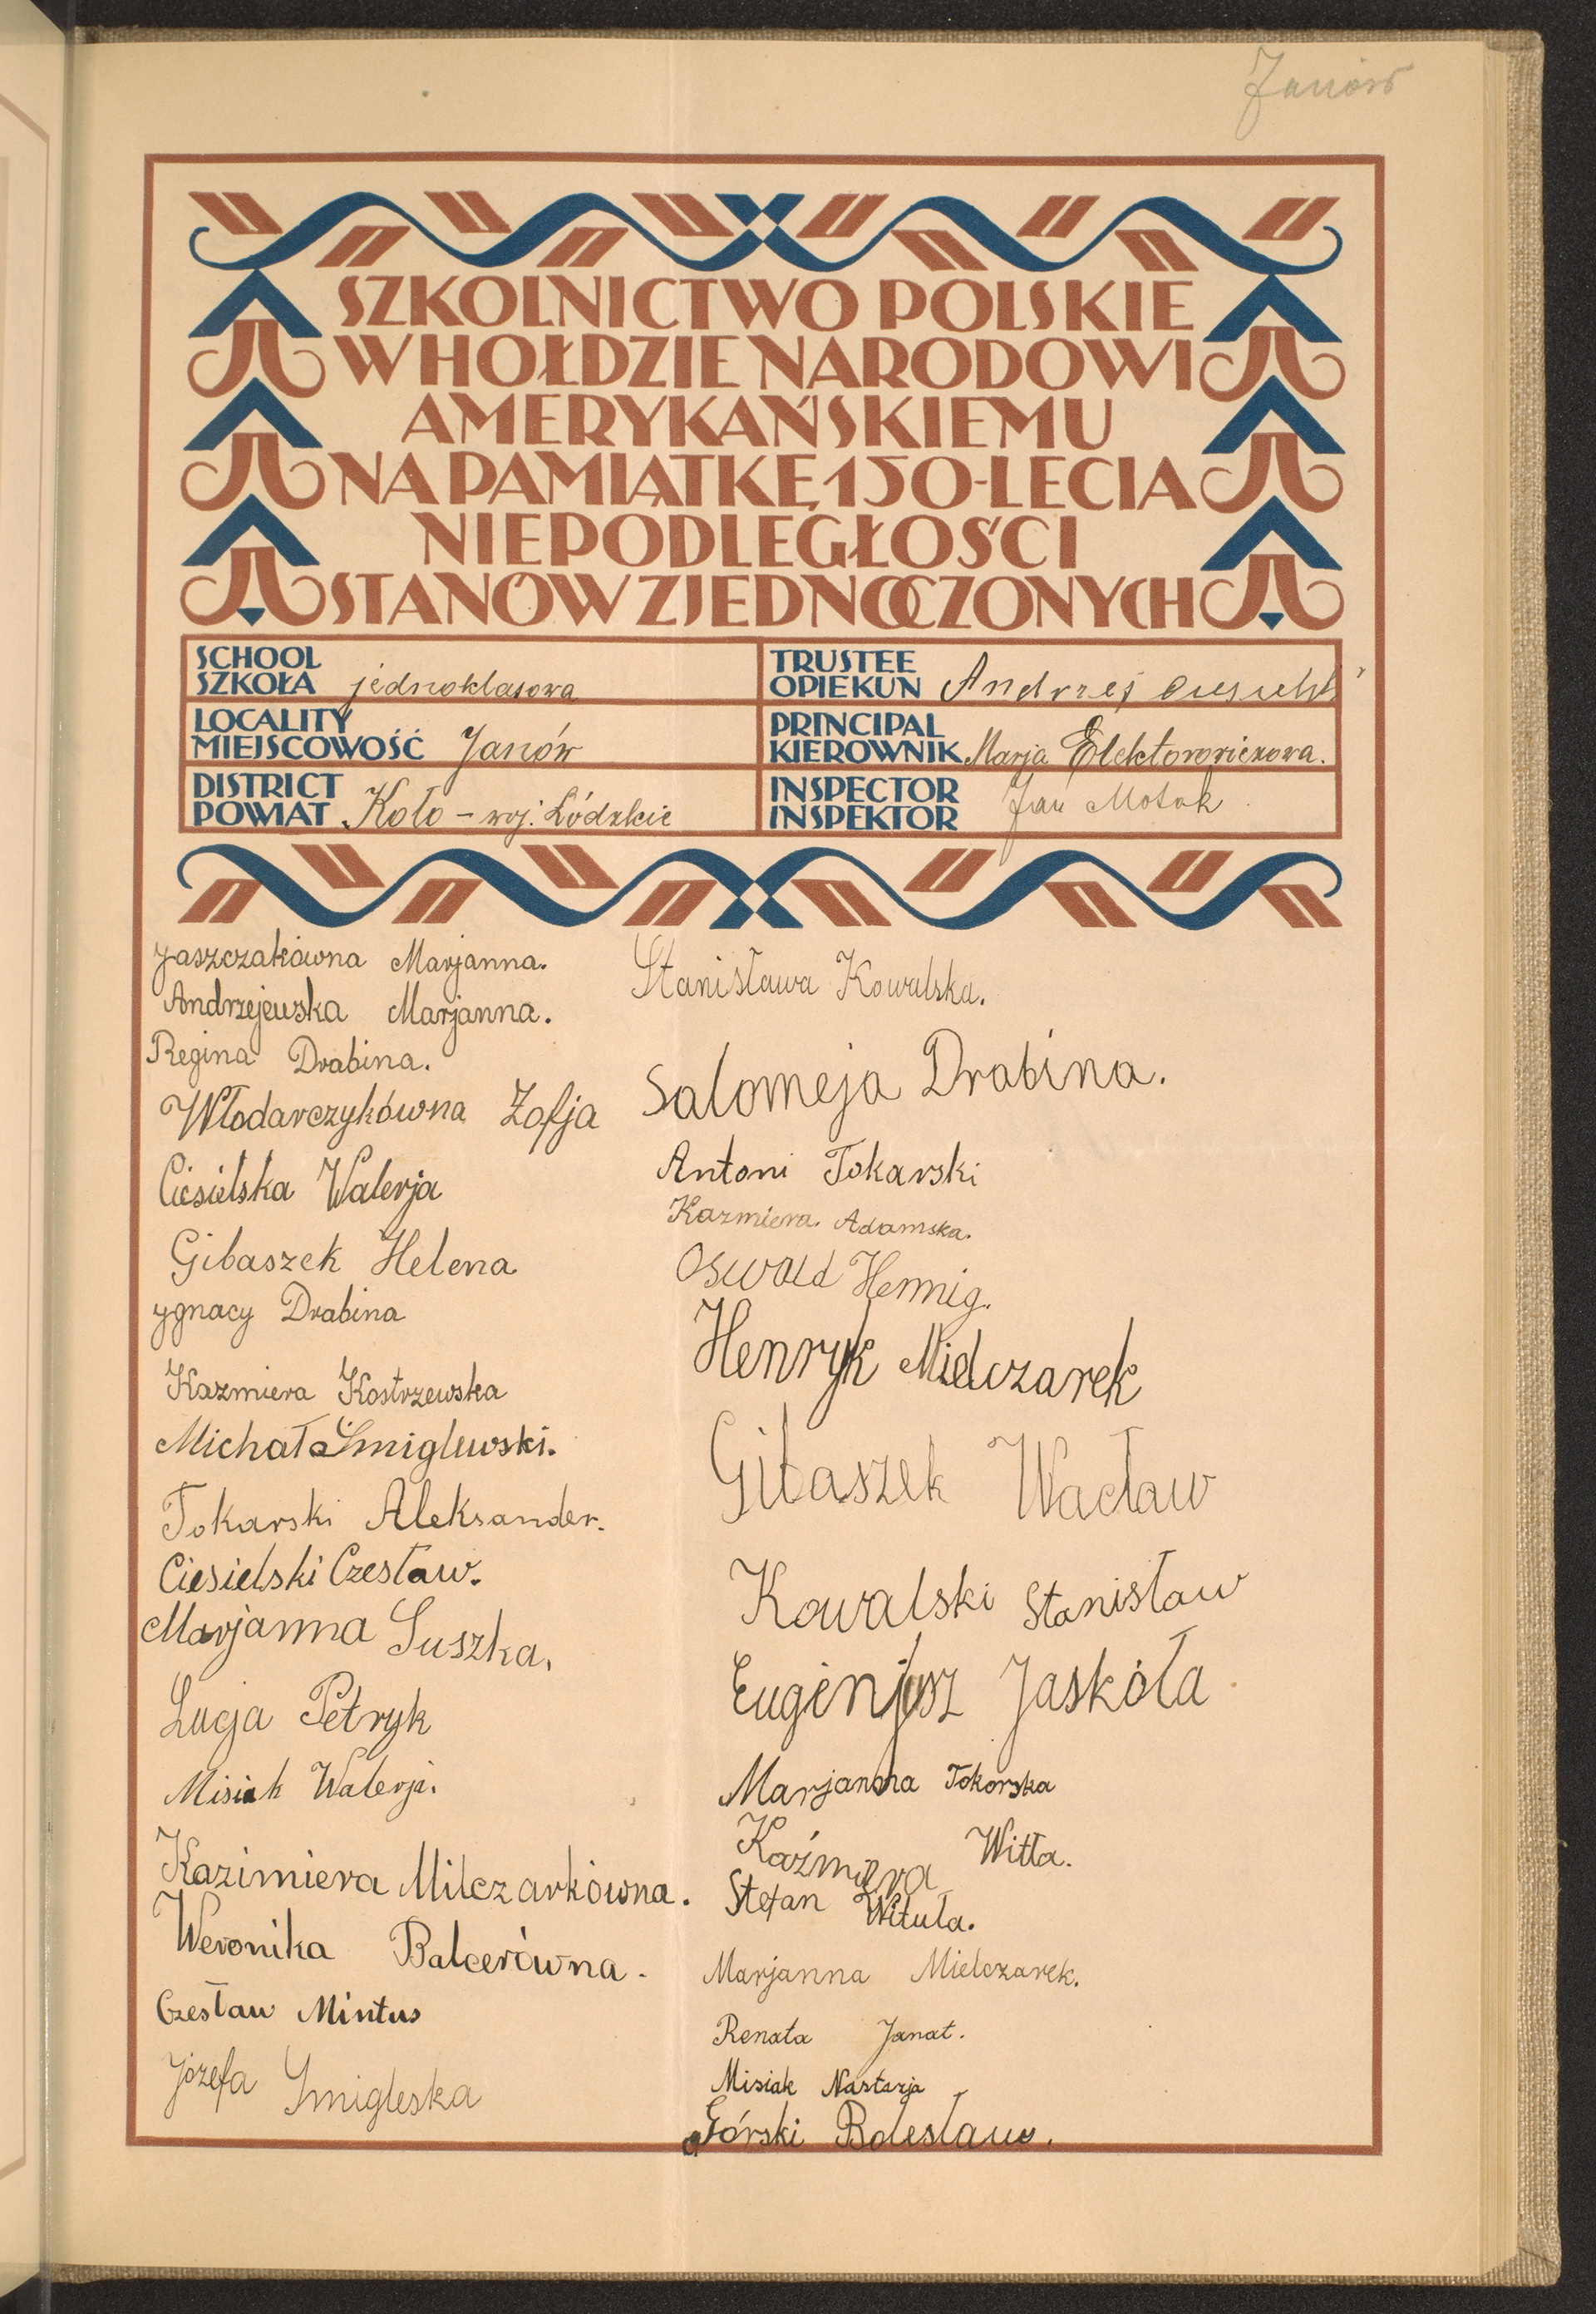 Janów
SZKOLNICTWO POLSKIE
W HOŁDZIE NARODOWI
AMERYKAŃSKIEMU
NA PAMIĄTKĘ 150-LECIA
NIEPODLEGŁOŚCI
STANÓW ZJEDNOCZONYCH
SCHOOL
SZKOŁA jednoklasowa
TRUSTEE
OPIEKUN Andrzej
LOCALITY
MIEJSCOWOŚĆ Janów
PRINCIPAL
KIEROWNIK Marja Elektorowiczowa.
DISTRICT
POWIAT Koło - woj. Łódzkie
INSPECTOR
INSPEKTOR Jan Motak
Jaszczakówna Marjanna.
Andrzejewska Marjanna.
Regina Drabina.
Włodarczykówna Zofja
Ciesielska Walerja
Gibaszek Helena
Ygnacy Drabina
Kazmiera Kostrzewska
Michał Smiglewski.
Tokarski Aleksander.
Ciesielski Czesław.
Marjanna Suszka.
Łucja Petryk
Misiak Walerja.
Kazimiera Milczarkówna.
Weronika Balcerówna.
Czesław Mintus
Józefa Smigleska
Stanisława Kowalska.
Salomeja Drabina.
Antoni Tokarski
Kazmiera. Adamska.
Oswald Hennig.
Henryk Mielczarek
Gibaszek Wacław
Kowalski Stanisław
Eugenjusz Jaskóła
Marjanna Tokorska
Kaźmiera Witła.
Stefan Wituła.
Marjanna Mielczarek.
Renata Janat.
Misiak Nastazja
Górski Bolesław.